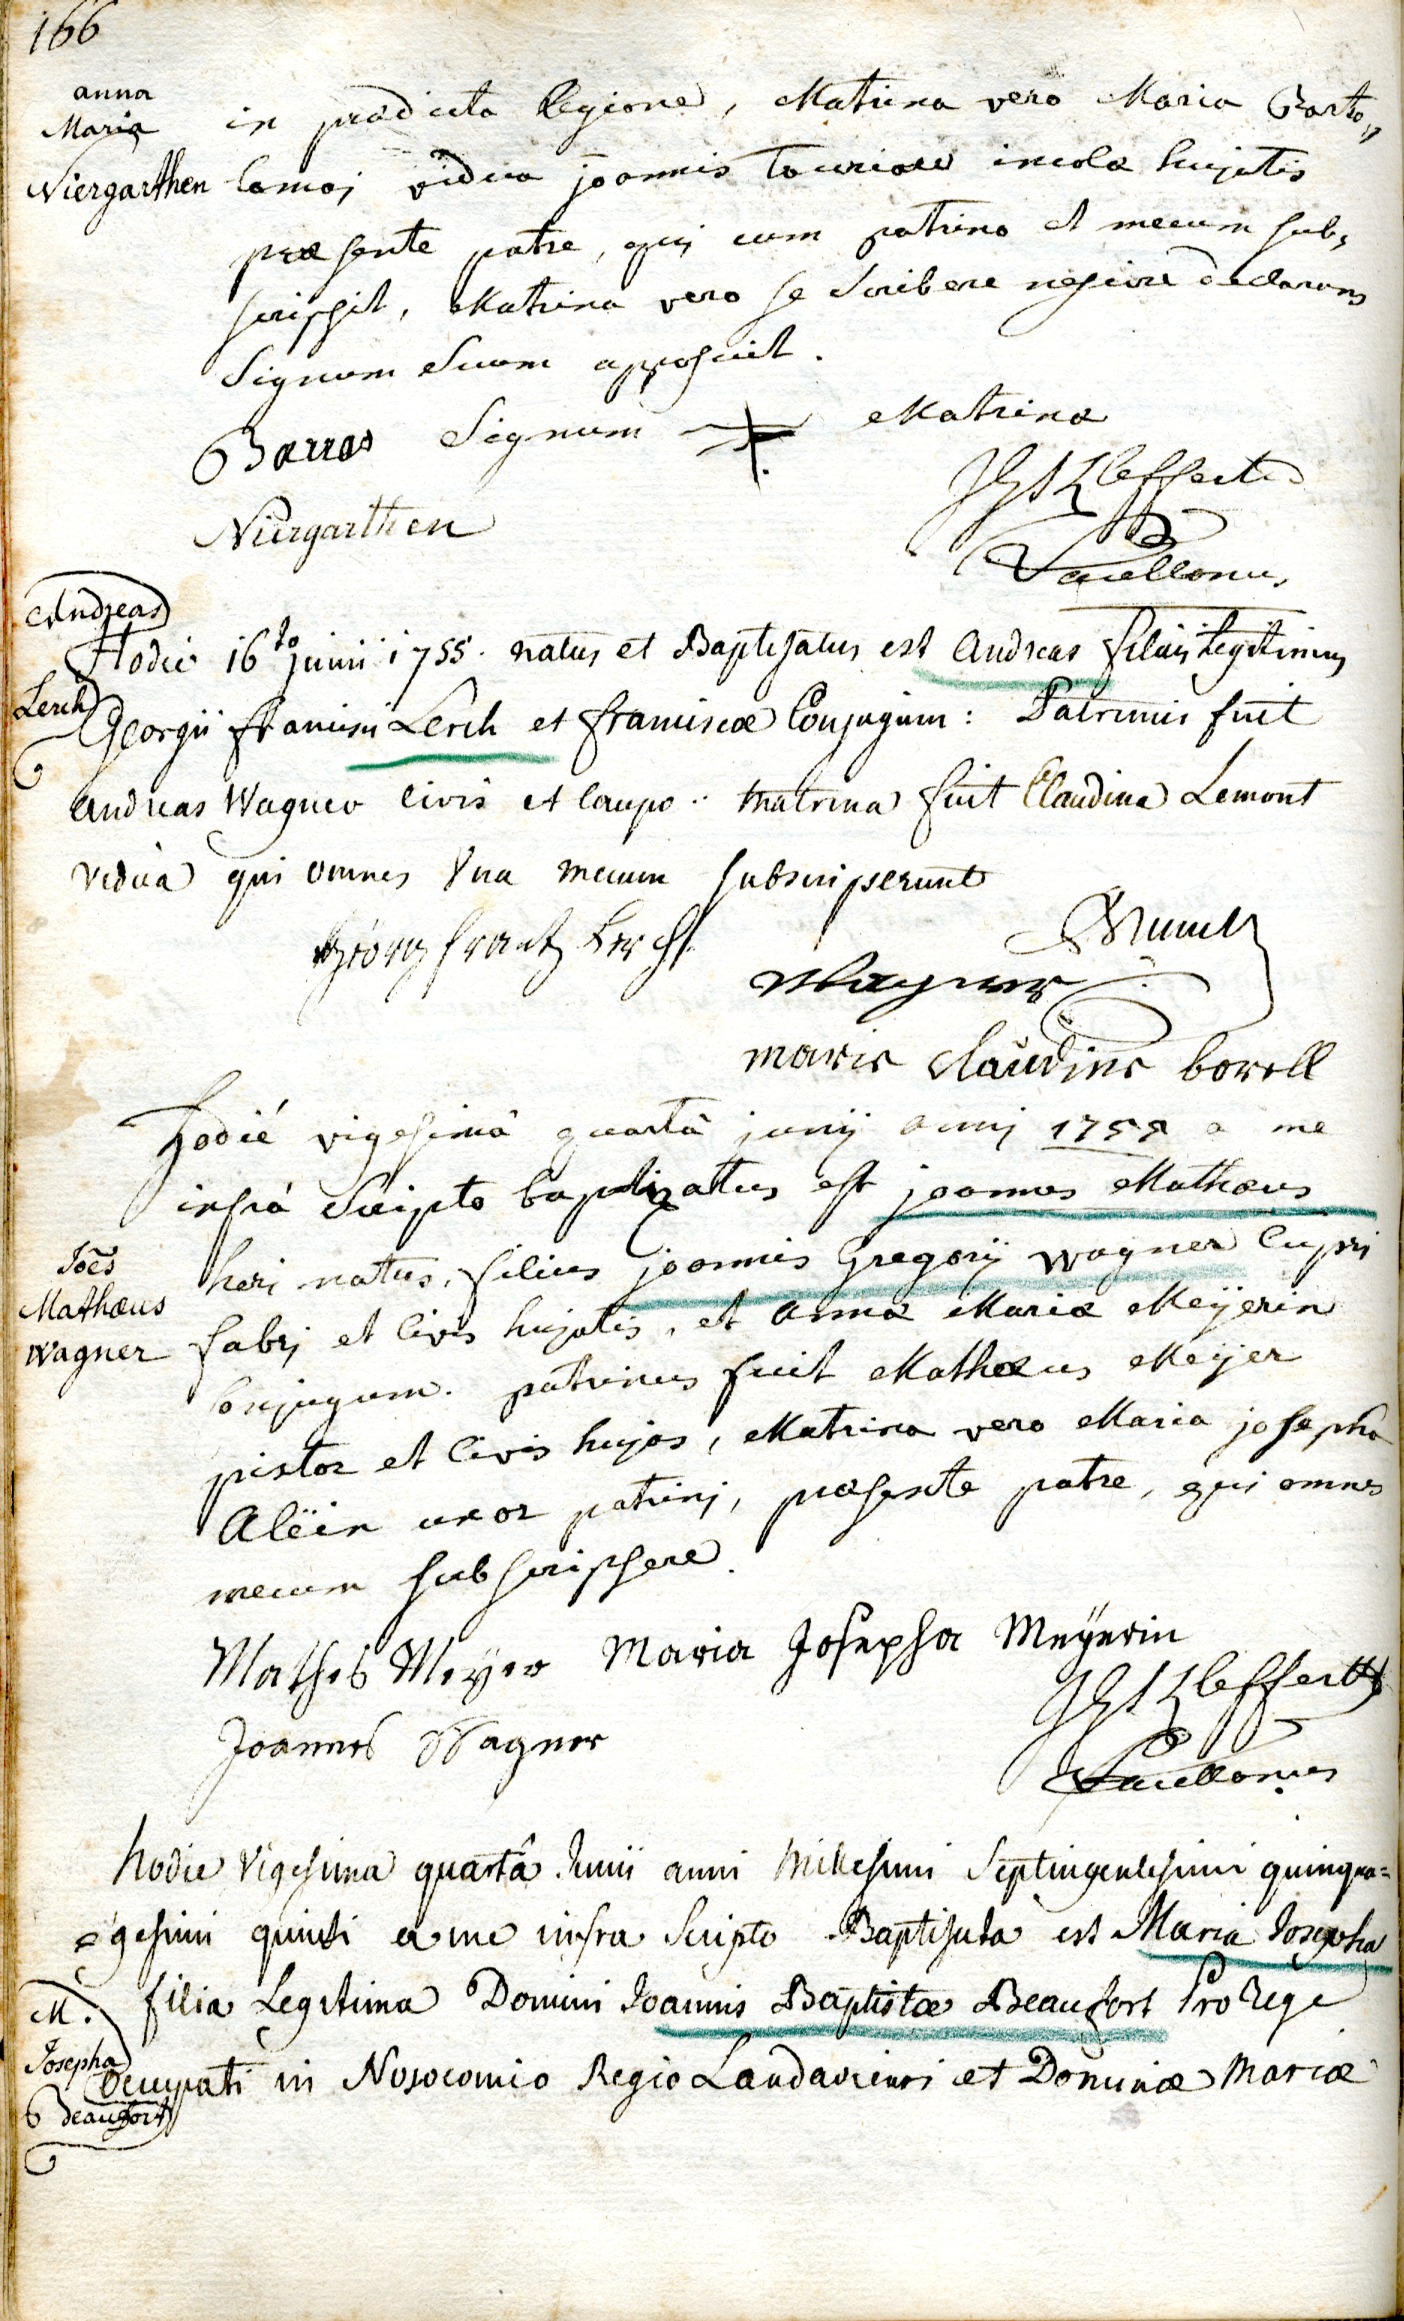 166
anna
Maria
Niergarthen
in prædicta Regione, Matrina vero Maria Barto„
lomæj vidua joannis incolæ hujatis
præsente patre, qui cum patrino et mecum sub„
scripsit, Matrina vero se Scribere nescire declarans
Signum Suum apposuit.
Barras Signum Matrinæ
Niergarthen
Sacellanus
Andreas
Lerch
Hodie 16to junii 1755. natus et Baptisatus est Andreas filius Legitimus
Georgii francisci Lerch et franciscæ Conjugum: Patrinus fuit
Andreas Wagner Civis et Caupo.. Matrina fuit Claudina Lemont
vidua qui omnes Una mecum subscripserunt
Georg frantz Lerch
Wagner
maria Claudina borell
Hodié vigesimâ quartâ junij annj 1755 a me
infrá Scripto baptizatus est joannes Mathæus
Joēs
Mathæus
Wagner
heri natus, filius joannis Gregorij Wagner Cupri
fabrj et Civis hujatis, et Annæ Mariæ Meÿerin
Conjugum. patrinus fuit Mathæus Meÿer
pistor et Civis hujas, Matrina vero Maria josepha
Alëin uxor patrinj, præsente patre, qui omnes
mecum subscripsere.
Mathes Meÿer Maria Josepha Meÿerin
Joannes Wagner
Sacellanus
hodie Vigesima quartâ Junii anni Millesimi Septingentesimi quinqua=
gesimi quinti a me infra Scripto Baptisata est Maria Josepha
filia Legitima Domini Joannis Baptistæ Beaufort Pro Rege
M.
Josepha
Beaufort
Occupati in Nosocomio Regio Landaviensi et Dominæ Mariæ